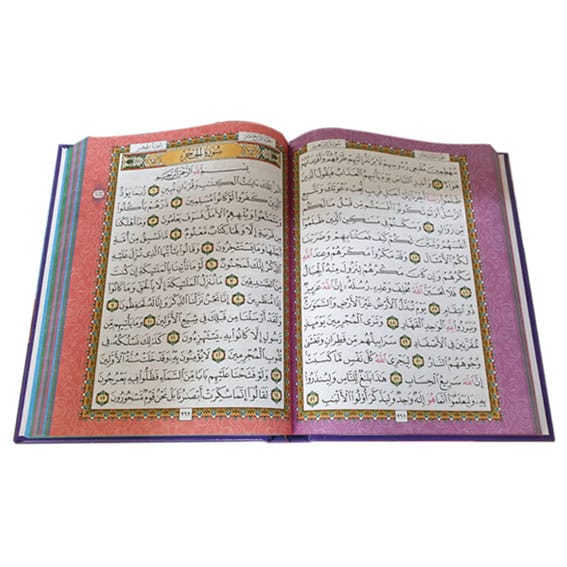 سُورَةُ إِبْرَاهِيمَ
مُهْطِعِينَ مُقْنِعِى رُءُوسِهِمْ لَا يَرْتَدُّ إِلَيْهِمْ طَرْفُهُمْ وَأَفْـِٔدَتُهُمْ
هَوَآءٌ ٤٣ وَأَنذِرِ ٱلنَّاسَ يَوْمَ يَأْتِيهِمُ ٱلْعَذَابُ فَيَقُولُ ٱلَّذِينَ
ظَلَمُوا۟ رَبَّنَآ أَخِّرْنَآ إِلَىٰٓ أَجَلٍ قَرِيبٍ نُّجِبْ دَعْوَتَكَ وَنَتَّبِعِ
ٱلرُّسُلَ أَوَلَمْ تَكُونُوٓا۟ أَقْسَمْتُم مِّن قَبْلُ مَا لَكُم
مِّن زَوَالٍ ٤٤ وَسَكَنتُمْ فِى مَسَٰكِنِ ٱلَّذِينَ ظَلَمُوٓا۟
أَنفُسَهُمْ وَتَبَيَّنَ لَكُمْ كَيْفَ فَعَلْنَا بِهِمْ وَضَرَبْنَا لَكُمُ
ٱلْأَمْثَالَ ٤٥ وَقَدْ مَكَرُوا۟ مَكْرَهُمْ وَعِندَ ٱللَّهِ
مَكْرُهُمْ وَإِن كَانَ مَكْرُهُمْ لِتَزُولَ مِنْهُ ٱلْجِبَالُ
٤٦ فَلَا تَحْسَبَنَّ ٱللَّهَ مُخْلِفَ وَعْدِهِۦ رُسُلَهُۥٓ إِنَّ ٱللَّهَ عَزِيزٌ
ذُو ٱنتِقَامٍ ٤٧ يَوْمَ تُبَدَّلُ ٱلْأَرْضُ غَيْرَ ٱلْأَرْضِ وَٱلسَّمَٰوَٰتُ
وَبَرَزُوا۟ لِلَّهِ ٱلْوَٰحِدِ ٱلْقَهَّارِ ٤٨ وَتَرَى ٱلْمُجْرِمِينَ يَوْمَئِذٍ
مُّقَرَّنِينَ فِى ٱلْأَصْفَادِ ٤٩ سَرَابِيلُهُم مِّن قَطِرَانٍ وَتَغْشَىٰ
وُجُوهَهُمُ ٱلنَّارُ ٥٠ لِيَجْزِىَ ٱللَّهُ كُلَّ نَفْسٍ مَّا كَسَبَتْ
إِنَّ ٱللَّهَ سَرِيعُ ٱلْحِسَابِ ٥١ هَٰذَا بَلَٰغٌ لِّلنَّاسِ وَلِيُنذَرُوا۟
بِهِۦ وَلِيَعْلَمُوٓا۟ أَنَّمَا هُوَ إِلَٰهٌ وَٰحِدٌ وَلِيَذَّكَّرَ أُو۟لُوا۟ ٱلْأَلْبَٰبِ ٥٢
٢٦١
سُورَةُ الحِجْرِ
سُورَةُ الحِجْرِ
بِسْمِ ٱللَّهِ ٱلرَّحْمَٰنِ ٱلرَّحِيمِ
الٓر تِلْكَ ءَايَٰتُ ٱلْكِتَٰبِ وَقُرْءَانٍ مُّبِينٍ ١ رُّبَمَا يَوَدُّ
ٱلَّذِينَ كَفَرُوا۟ لَوْ كَانُوا۟ مُسْلِمِينَ ٢ ذَرْهُمْ يَأْكُلُوا۟
وَيَتَمَتَّعُوا۟ وَيُلْهِهِمُ ٱلْأَمَلُ فَسَوْفَ يَعْلَمُونَ ٣ وَمَآ أَهْلَكْنَا
مِن قَرْيَةٍ إِلَّا وَلَهَا كِتَابٌ مَّعْلُومٌ ٤ مَّا تَسْبِقُ مِنْ أُمَّةٍ
أَجَلَهَا وَمَا يَسْتَـْٔخِرُونَ ٥ وَقَالُوا۟ يَٰٓأَيُّهَا ٱلَّذِى نُزِّلَ عَلَيْهِ
ٱلذِّكْرُ إِنَّكَ لَمَجْنُونٌ ٦ لَّوْ مَا تَأْتِينَا بِٱلْمَلَٰٓئِكَةِ إِن كُنتَ
مِنَ ٱلصَّٰدِقِينَ ٧ مَا نُنَزِّلُ ٱلْمَلَٰٓئِكَةَ إِلَّا بِٱلْحَقِّ وَمَا كَانُوٓا۟
إِذًا مُّنظَرِينَ ٨ إِنَّا نَحْنُ نَزَّلْنَا ٱلذِّكْرَ وَإِنَّا لَهُۥ لَحَٰفِظُونَ ٩
وَلَقَدْ أَرْسَلْنَا مِن قَبْلِكَ فِى شِيَعِ ٱلْأَوَّلِينَ ١٠ وَمَا يَأْتِيهِم مِّن
رَّسُولٍ إِلَّا كَانُوا۟ بِهِۦ يَسْتَهْزِءُونَ ١١ كَذَٰلِكَ نَسْلُكُهُۥ فِى
قُلُوبِ ٱلْمُجْرِمِينَ ١٢ لَا يُؤْمِنُونَ بِهِۦ وَقَدْ خَلَتْ سُنَّةُ ٱلْأَوَّلِينَ
١٣ وَلَوْ فَتَحْنَا عَلَيْهِم بَابًا مِّنَ ٱلسَّمَآءِ فَظَلُّوا۟ فِيهِ يَعْرُجُونَ
١٤ لَقَالُوٓا۟ إِنَّمَا سُكِّرَتْ أَبْصَٰرُنَا بَلْ نَحْنُ قَوْمٌ مَّسْحُورُونَ ١٥
٢٦٢